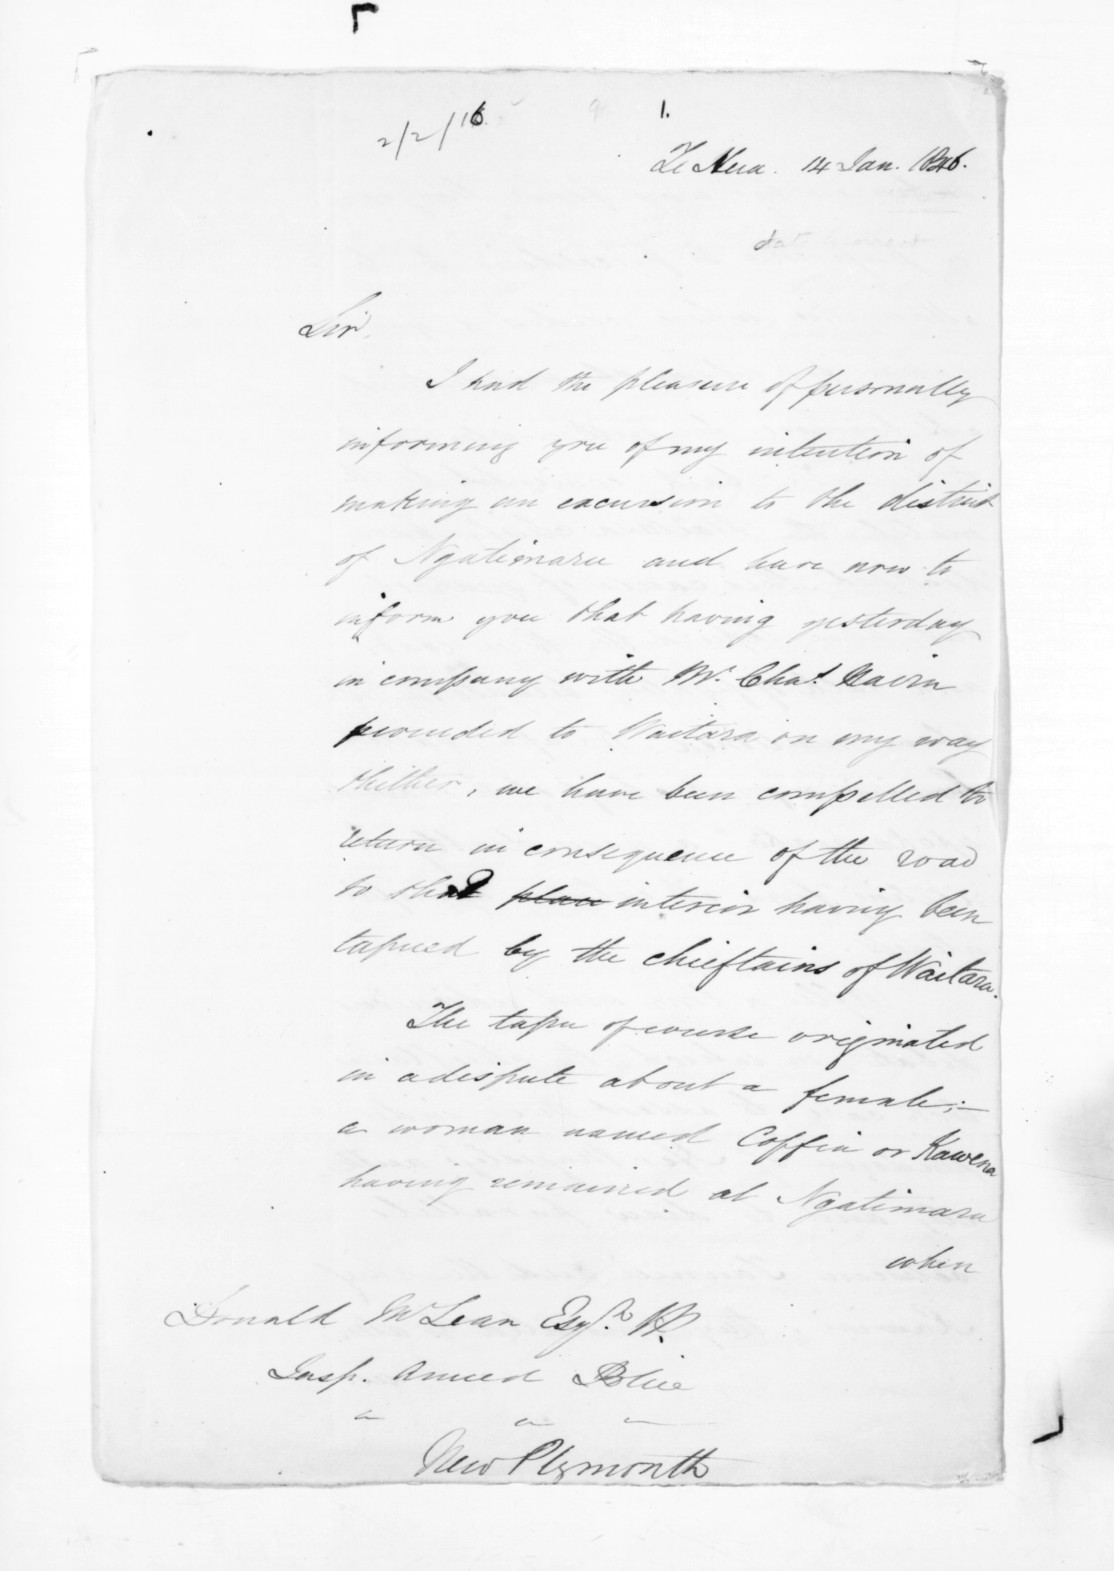 2/2/16.
1.
Te Hua. 14 Jan. 1846.
Sir,
I had the pleasure of personally
informing you of my intention of
making an excursion to the district
of Ngatimaru and have now to
inform you that having yesterday
in company with Mr. Chas. Davin
proceeded to Waitara on my way
thither, we have been compelled to
return in consequence of the road
to that place interior having been
tapued by the chieftains of Waitara.
The tapu of course originated
in a dispute about a female;—
a woman named Coffin or Kawena
having remained at Ngatimaru
when
Donald McLean Esqre.
Insp. Armed Police
New Plymouth